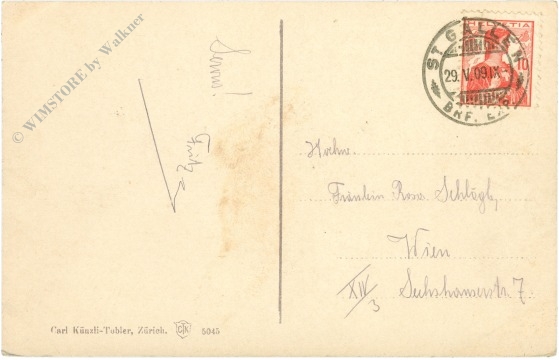 © WIMSTORE by Walkner
Servus!
Fritz
HELVETIA
10
ST. GALLEN
29.V.09 IX-
BRF. EX
Hochw.
Fräulein Rosa Schlögl,
Wien
XIV/3 Sechshauserstr 7.
Carl Künzli-Tobler, Zürich. CTK 5045